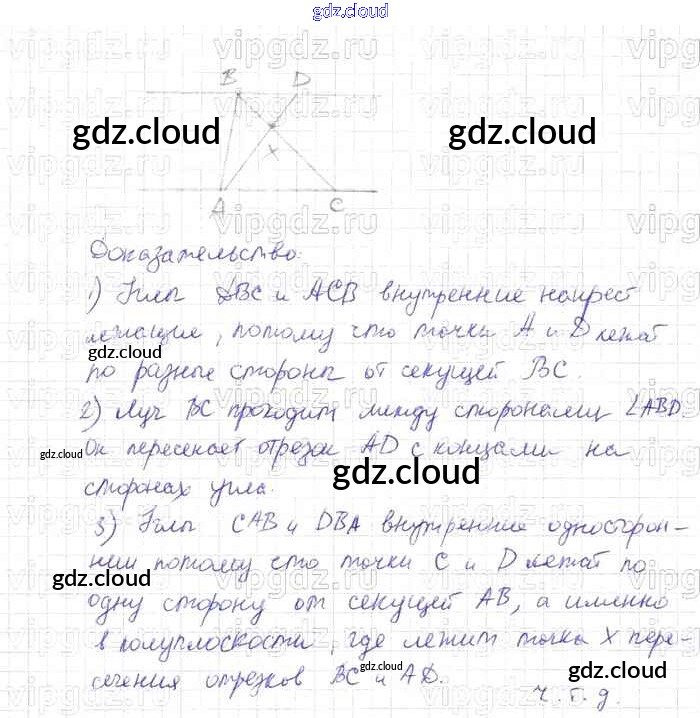 gdz.cloud
B D
gdz.cloud gdz.cloud
X
A C
Доказательство:
1) Углы DBC и ACB внутренние накрест
лежащие, потому что точки A и D лежат
gdz.cloud
по разные стороны от секущей BC.
2) Луч BC проходит между сторонами ∠ABD.
Он пересекает отрезок AD с концами на
gdz.cloud
gdz.cloud
сторонах угла.
3) Углы CAB и DBA внутренние односторон-
ние потому что точки C и D лежат по
gdz.cloud
одну сторону от секущей AB, а именно
в полуплоскости, где лежит точка X пере-
сечения отрезков BC и AD.
gdz.cloud gdz.cloud gdz.cloud
ч.т.д.